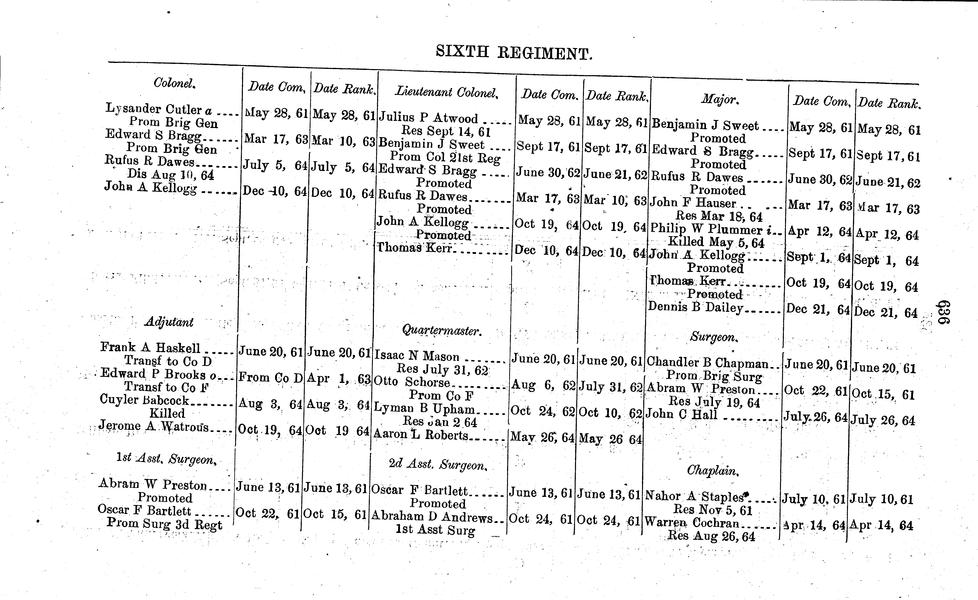 SIXTH REGIMENT.
Colonel. Date Com. Date Rank. Lieutenant Colonel. Date Com. Date Rank. Major. Date Com. Date Rank.
Lysander Cutler a .... May 28, 61 May 28, 61 Julius P Atwood ..... May 28, 61 May 28, 61 Benjamin J Sweet .... May 28, 61 May 28, 61
Prom Brig Gen Res Sept 14, 61 Promoted
Edward S Bragg..... Mar 17, 63 Mar 10, 63 Benjamin J Sweet .... Sept 17, 61 Sept 17, 61 Edward S Bragg..... Sept 17, 61 Sept 17, 61
Prom Brig Gen Prom Col 21st Reg Promoted
Rufus R Dawes...... July 5, 64 July 5, 64 Edward S Bragg ..... June 30, 62 June 21, 62 Rufus R Dawes ...... June 30, 62 June 21, 62
Dis Aug 10, 64 Promoted Promoted
John A Kellogg ...... Dec 10, 64 Dec 10, 64 Rufus R Dawes....... Mar 17, 63 Mar 10, 63 John F Hauser .. .... Mar 17, 63 Mar 17, 63
Promoted Res Mar 18, 64
John A Kellogg ...... Oct 19, 64 Oct 19, 64 Philip W Plummer i.. Apr 12, 64 Apr 12, 64
Promoted Killed May 5, 64
Thomas Kerr......... Dec 10, 64 Dec 10, 64 John A Kellogg...... Sept 1, 64 Sept 1, 64
Promoted
Thomas Kerr........ Oct 19, 64 Oct 19, 64
Promoted
Dennis B Dailey..... Dec 21, 64 Dec 21, 64
636
Adjutant Quartermaster. Surgeon.
Frank A Haskell ..... June 20, 61 June 20, 61 Isaac N Mason ...... June 20, 61 June 20, 61 Chandler B Chapman.. June 20, 61 June 20, 61
Transf to Co D Res July 31, 62 Prom Brig Surg
Edward P Brooks o... From Co D Apr 1, 63 Otto Schorse........ Aug 6, 62 July 31, 62 Abram W Preston.... Oct 22, 61 Oct 15, 61
Transf to Co F Prom Co F Res July 19, 64
Cuyler Babcock...... Aug 3, 64 Aug 3, 64 Lyman B Upham..... Oct 24, 62 Oct 10, 62 John C Hall ........ July 26, 64 July 26, 64
Killed Res Jan 2 64
Jerome A Watrous.... Oct 19, 64 Oct 19 64 Aaron L Roberts...... May 26, 64 May 26 64
1st Asst. Surgeon. 2d Asst. Surgeon. Chaplain.
Abram W Preston.... June 13, 61 June 13, 61 Oscar F Bartlett...... June 13, 61 June 13, 61 Nahor A Staples..... July 10, 61 July 10, 61
Promoted Promoted Res Nov 5, 61
Oscar F Bartlett ..... Oct 22, 61 Oct 15, 61 Abraham D Andrews.. Oct 24, 61 Oct 24, 61 Warren Cochran...... Apr 14, 64 Apr 14, 64
Prom Surg 3d Regt 1st Asst Surg Res Aug 26, 64